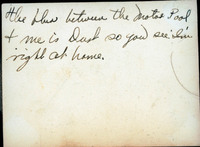 the blur between the Motor Pool
& me is Dust so you see I'm
right at home.